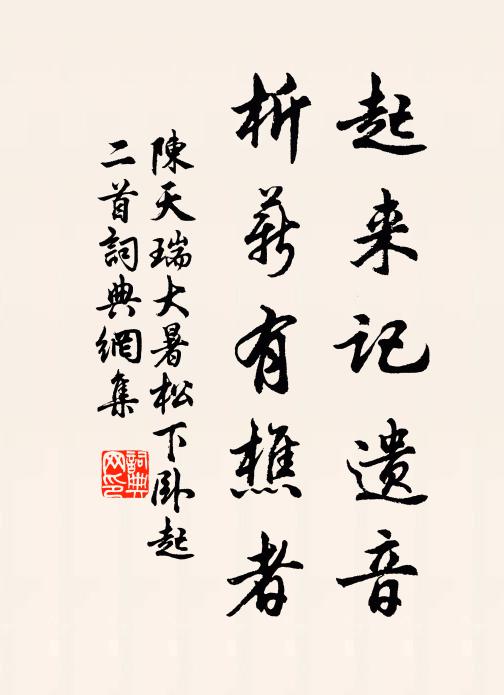 起来记遗音
析薪有樵者
陳天瑞大暑松下卧起
二首詞典網集
詞典網印